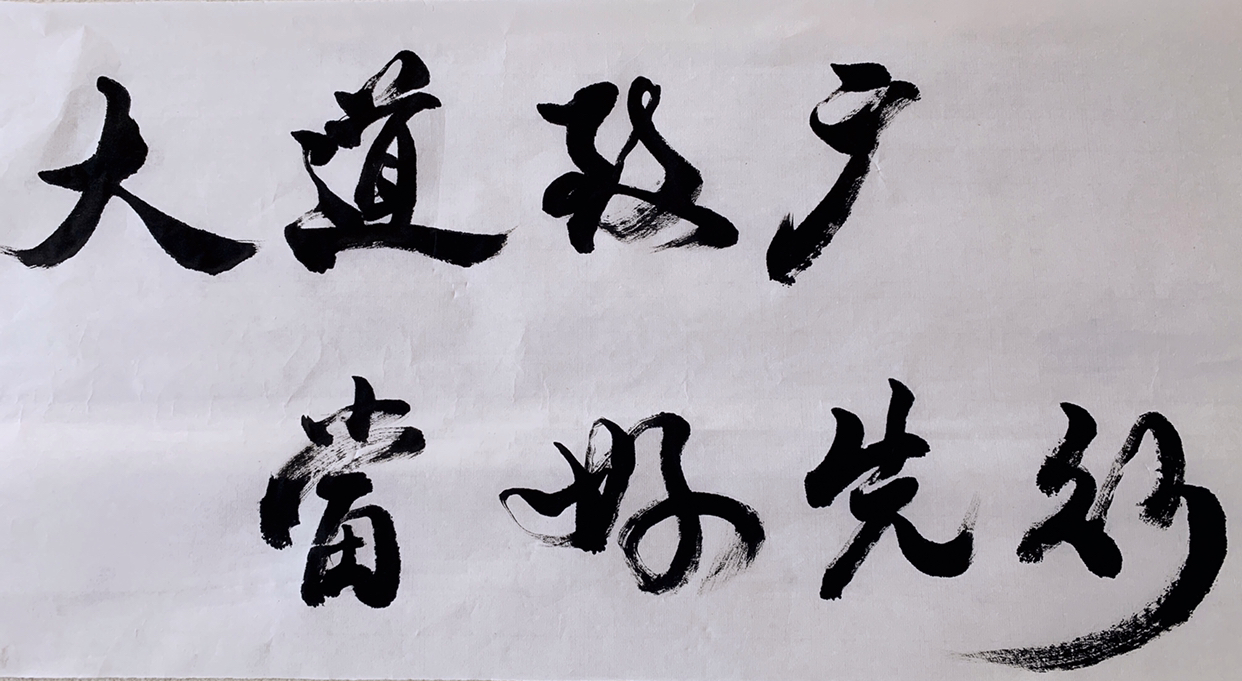 大道致广
當好先行